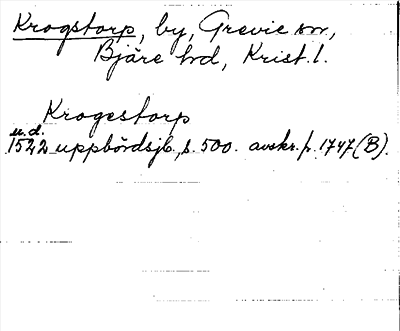 Krogstorp, by, Grevie sn,
Bjäre hd, Krist. l.
Krogestorp
u.d.
1522 uppbördsjb, s. 500. avskr. fr. 1747 (B).